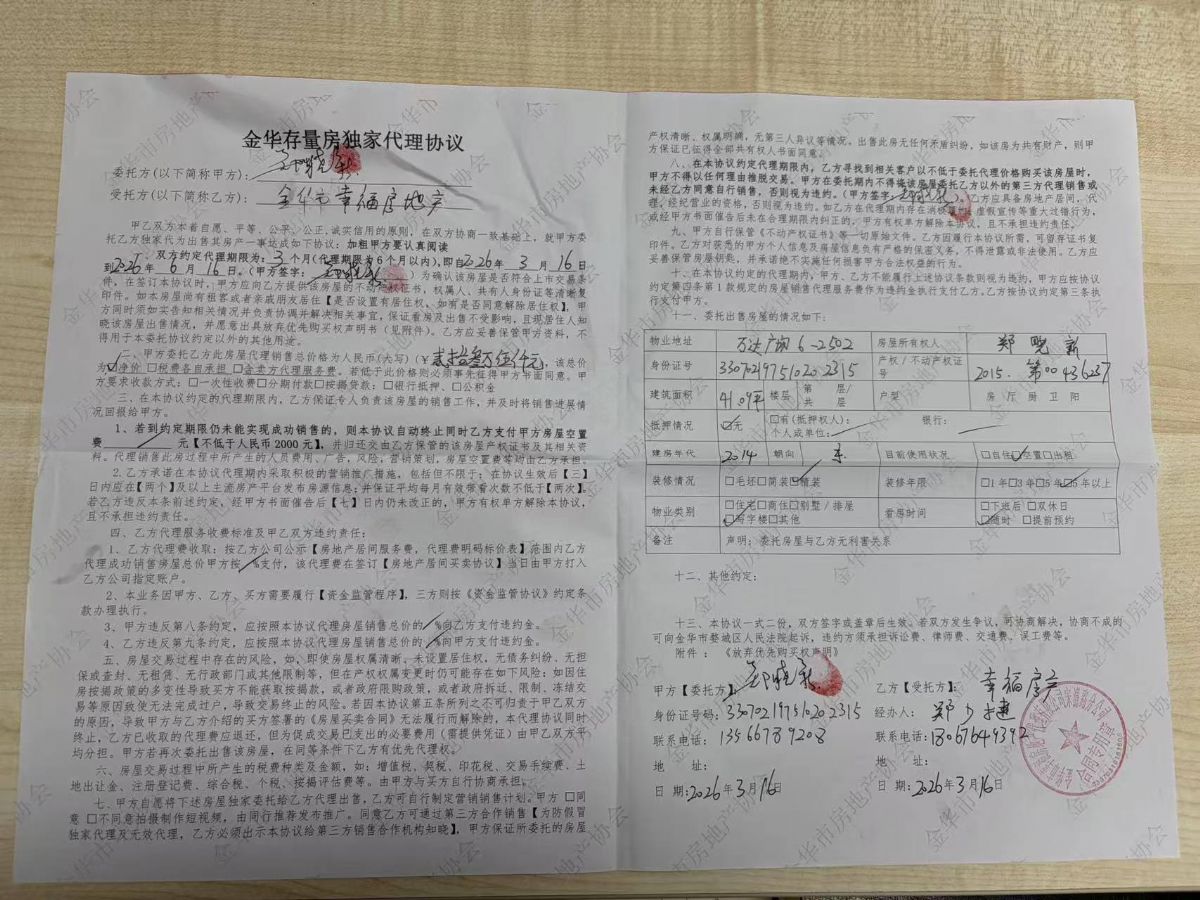 金华存量房独家代理协议
委托方(以下简称甲方):郑晓新
受托方(以下简称乙方):金华市幸福房地产
甲乙双方本着自愿、平等、公平、公正,诚实信用的原则,在双方协商一致基础上,就甲方委
托乙方独家代为出售其房产一事达成如下协议:加粗甲方要认真阅读
一、双方约定代理期限为:3个月(代理期限为6个月以内),即自2026年3月16日
到2026年6月16日。(甲方签字:郑晓新)为确认该房屋是否符合上市交易条
件,在签订本协议时,甲方应向乙方提供该房屋的不动产权证书、权属人、共有人身份证等清晰复
印件。如本房屋尚有租客或者亲戚朋友居住【是否设置有居住权,如有是否同意解除居住权】,甲
方同时须如实告知相关情况并负责协调并解决相关事宜,保证看房及出售不受影响,且现居住人知
晓该房屋出售情况,并愿意出具放弃优先购买权声明书(见附件)。乙方应妥善保管甲方资料,不
得用于本委托协议约定以外的其他用途。
二、甲方委托乙方此房屋代理销售总价格为人民币(大写)(¥贰拾叁万伍仟元),该总价
为☑净价 □税费各自承担 □含卖方代理服务费。若低于此价格则必须事先征得甲方书面同意。甲
方要求收款方式:□一次性收费□分期付款□按揭贷款:□银行抵押、□公积金
三、在本协议约定的代理期限内,乙方保证专人负责该房屋的销售工作,并及时将销售进展情
况回报给甲方。
1、若到约定期限仍未能实现成功销售的,则本协议自动终止同时乙方支付甲方房屋空置
费 / 元【不低于人民币2000元】,并归还交由乙方保管的该房屋产权证书及其相关资
料。代理销售此房过程中所产生的人员费用、广告、风险、营销策划,房屋空置费等均由乙方承担。
2、乙方承诺在本协议代理期限内采取积极的营销推广措施,包括但不限于:在协议生效后【三】
日内应在【两个】及以上主流房产平台发布房源信息;并保证平均每月有效带看次数不低于【两次】。
若乙方违反本条前述约定,经甲方书面催告后【七】日内仍未改正的,甲方有权单方解除本协议,
且不承担违约责任。
四、乙方代理服务收费标准及甲乙双方违约责任:
1、乙方代理费收取:按乙方公司公示【房地产居间服务费,代理费明码标价表】范围内乙方
代理成功销售房屋总价甲方按 / %支付,该代理费在签订【房地产居间买卖协议】当日由甲方打入
乙方公司指定账户。
2、本业务因甲方、乙方、买方需要履行【资金监管程序】,三方则按《资金监管协议》约定条
款办理执行。
3、甲方违反第八条约定,应按照本协议代理房屋销售总价的 / %向乙方支付违约金。
4、乙方违反第九条约定,应按照本协议代理房屋销售总价的 / %向甲方支付违约金。
五、房屋交易过程中存在的风险,如:即使房屋权属清晰、未设置居住权,无债务纠纷、无担
保或查封、无租赁、无行政部门或其他限制等,但在产权权属变更时仍可能存在如下风险:如因住
房按揭政策的多变性导致买方不能获取按揭款,或者政府限购政策,或者政府拆迁、限制、冻结交
易等原因致使无法完成过户,导致交易终止的风险。若因本协议第五条所列之不可归责于甲乙双方
的原因,导致甲方与乙方介绍的买方签署的《房屋买卖合同》无法履行而解除的,本代理协议同时
终止,乙方已收取的代理费应退还,但为促成交易已支出的必要费用(需提供凭证)由甲乙双方平
均分担。甲方若再次委托出售该房屋,在同等条件下乙方有优先代理权。
六、房屋交易过程中所产生的税费种类及金额,如:增值税、契税、印花税、交易手续费、土
地出让金、注册登记费、综合税、个税、按揭评估费等。由甲方与买方自行协商承担。
七、甲方自愿将下述房屋独家委托给乙方代理出售,乙方可自行制定营销销售计划。甲方 □同
意 □不同意拍摄制作短视频,由同行推荐发布推广。同意乙方可通过第三方合作销售【为防假冒
独家代理及无效代理,乙方必须出示本协议给第三方销售合作机构知晓】,甲方保证所委托的房屋
产权清晰、权属明确,无第三人异议等情况。出售此房无任何矛盾纠纷,如该房为共有财产,则甲
方保证已征得全部共有权人书面同意。
八、在本协议约定代理期限内,乙方寻找到相关客户以不低于委托代理价格购买该房屋时,
甲方不得以任何理由推脱交易。甲方在委托期内不得将该房屋委托乙方以外的第三方代理销售或
未经乙方同意自行销售,否则视为违约。(甲方签字:郑晓新)乙方应具备房地产居间、代
理、经纪营业的资格,否则视为违约。如乙方在代理期内存在消极 虚假宣传等重大过错行为,
或经甲方书面催告后未在合理期限内纠正的,甲方有权单方解除本协议,且不承担违约责任。
九、甲方自行保管《不动产权证书》等一切原始文件。乙方因履行本协议所需,可留存证书复
印件。乙方对获悉的甲方个人信息及房屋信息负有严格的保密义务,不得泄露或非法使用。乙方应
妥善保管房屋钥匙,并承诺绝不实施任何损害甲方合法权益的行为。
十、在本协议约定的代理期内,甲方、乙方不能履行上述协议条款则视为违约,甲方应按协议
约定第四条第1款规定的房屋销售代理服务费作为违约金执行支付乙方。乙方按协议约定第三条执
行支付甲方。
十一、委托出售房屋的情况如下:
物业地址 万达广场6-2502 房屋所有权人 郑晓新
身份证号 330702197510202315 产权/不动产权证号 2015. 第00436237
建筑面积 41.09平 楼层 第 层/共 层 户型 房 厅 厨 卫 阳
抵押情况 ☑无 □有(抵押权人): 银行:
个人或单位:
建房年代 2014 朝向 东 目前使用状况 □自住☑空置□出租
装修情况 □毛坯□简装☑精装 装修年限 □1年□3年□5年☑5年以上
物业类别 □住宅□商住□别墅/排屋 ☑写字楼□其他 看房时间 □下班后 □双休日 ☑随时 □提前预约
备注 声明:委托房屋与乙方无利害关系
十二、其他约定:
十三、本协议一式二份,双方签字或盖章后生效。若双方发生争议,可协商解决,协商不成的
可向金华市婺城区人民法院起诉,违约方须承担诉讼费、律师费、交通费、误工费等。
附件:《放弃优先购买权声明》
甲方【委托方】:郑晓新 乙方【受托方】:幸福房产
身份证号码:330702197510202315 经办人:郑少建
联系电话:13566789208 联系电话:18067649392
地 址: 地 址:
日 期:2026年3月16日 日 期:2026年3月16日
合同专用章
金华市房地产协会